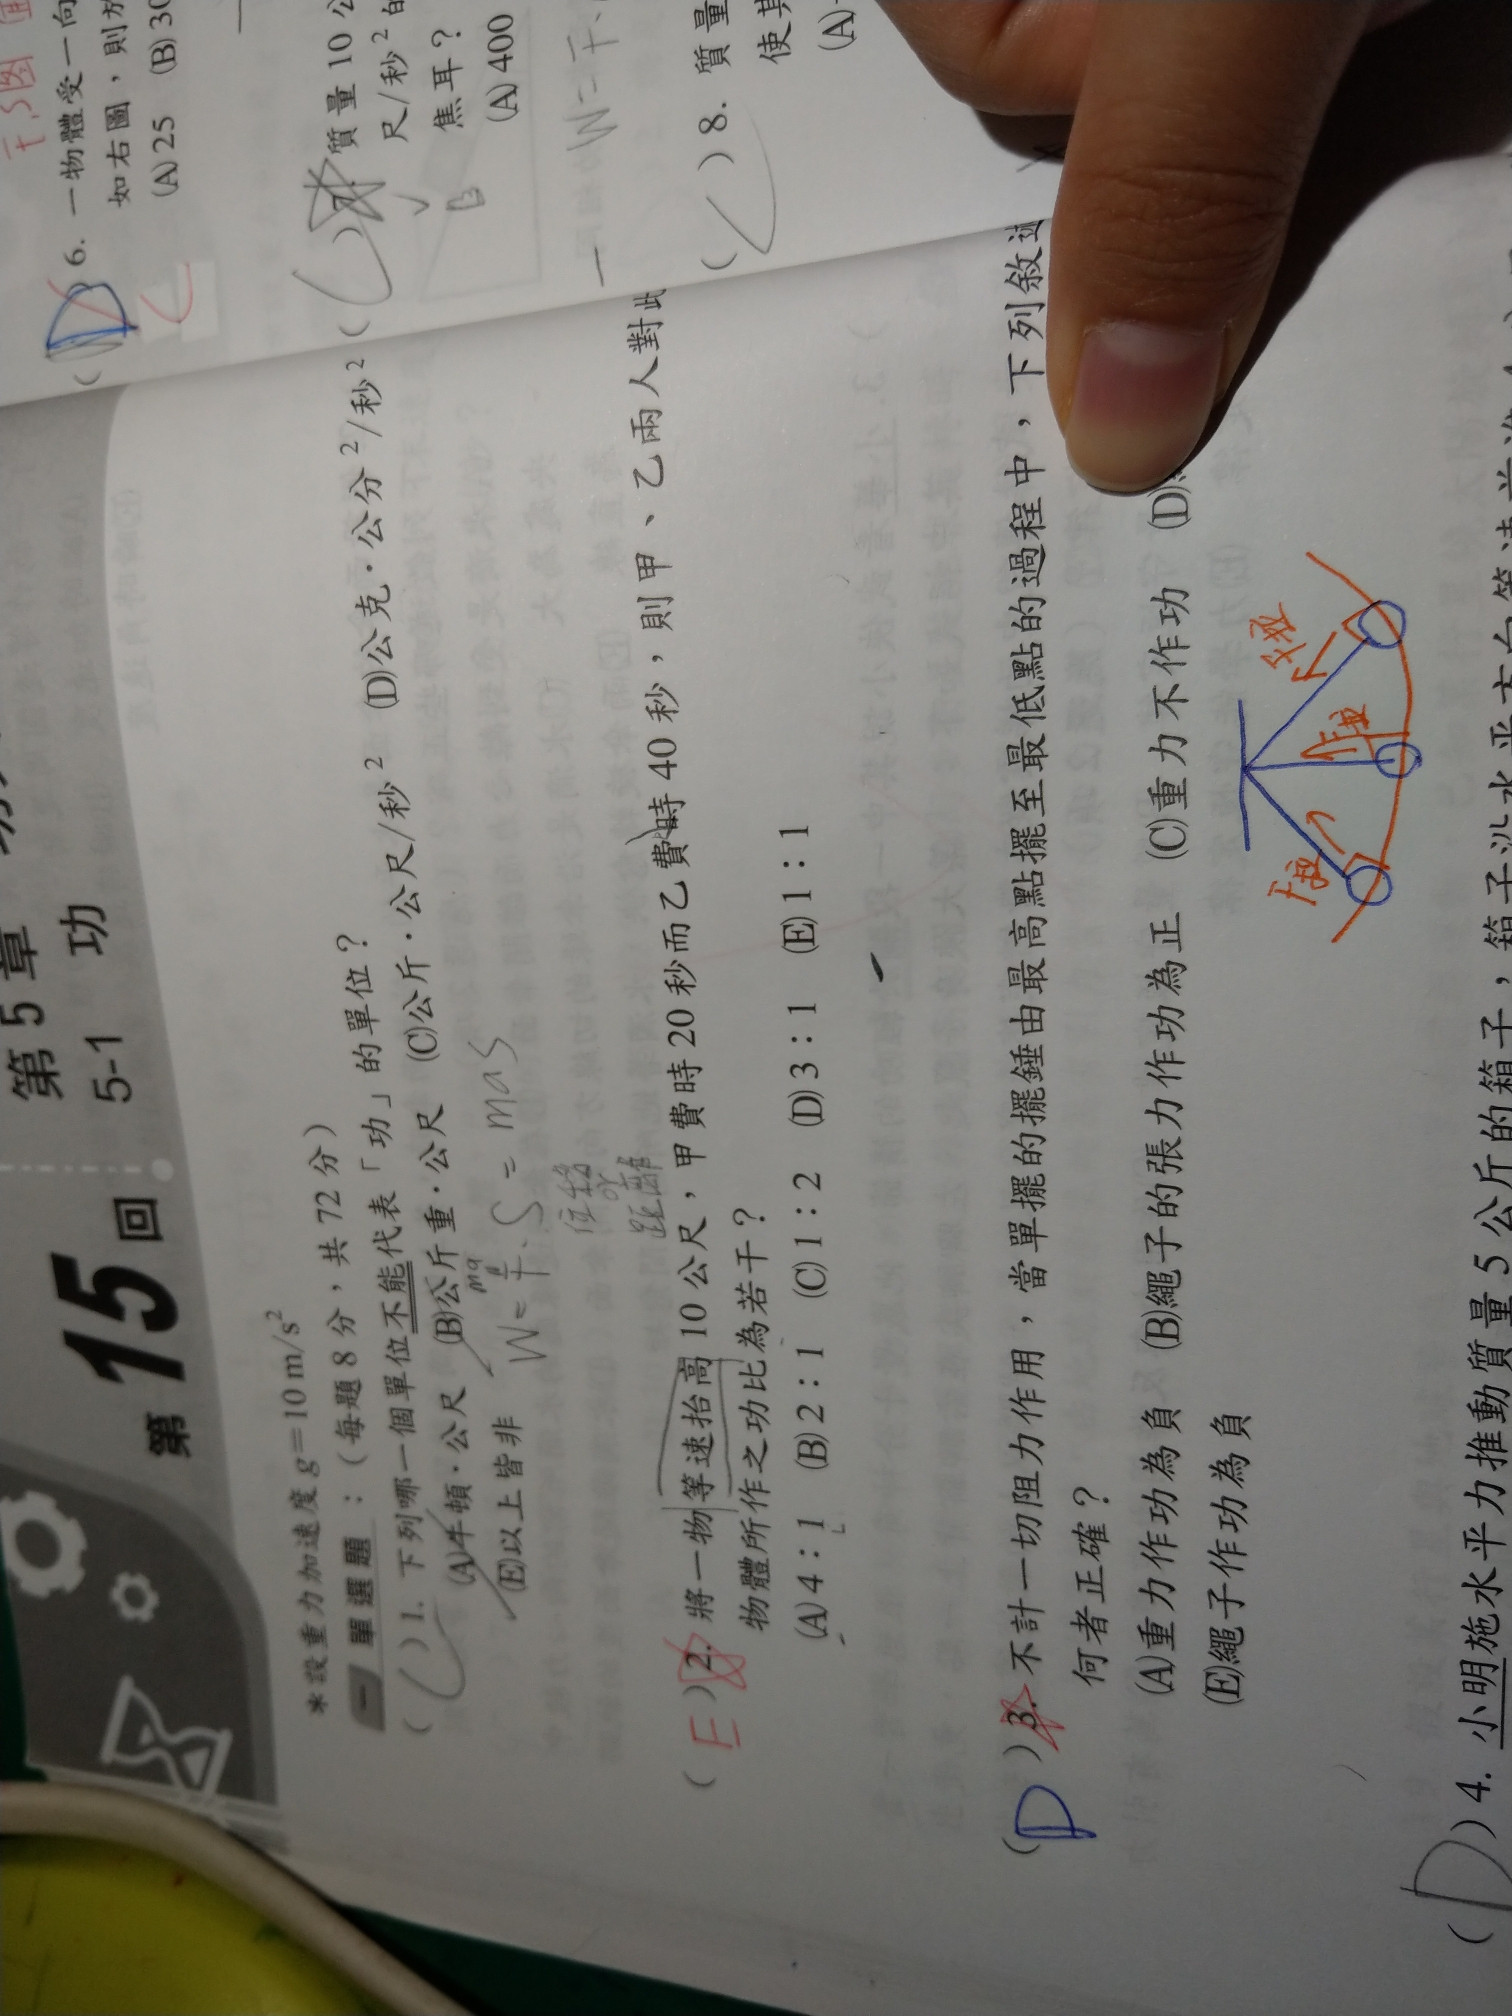 第 15 回
第 5 章
5-1 功
＊設重力加速度 g＝10 m/s²
一 單選題：（每題 8 分，共 72 分）
( )1. 下列哪一個單位不能代表「功」的單位？
(A)牛頓·公尺 (B)公斤重·公尺 (C)公斤·公尺/秒² (D)公克·公分²/秒²
(E)以上皆非
W=F·S=maS
位移
or
距離
(E)2. 將一物等速抬高 10 公尺，甲費時 20 秒而乙費時 40 秒，則甲、乙兩人對此
物體所作之功比為若干？
(A)4：1 (B)2：1 (C)1：2 (D)3：1 (E)1：1
(D)3. 不計一切阻力作用，當單擺的擺錘由最高點擺至最低點的過程中，下列敘述
何者正確？
(A)重力作功為負 (B)繩子的張力作功為正 (C)重力不作功 (D)
(E)繩子作功為負
(D)4. 小明施水平力推動質量 5 公斤的箱子，箱子沿水平方向等速前進
(D 6. 一物體受一向
如右圖，則
(A)25 (B)30
C
( ) 質量 10 公
尺/秒² 的
焦耳？
(A)400
B
W=F
( )8. 質量
使其
(A)